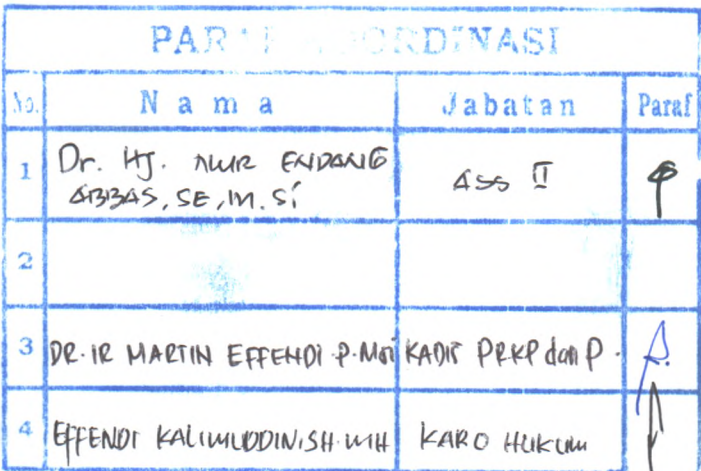 PARAF KOORDINASI
No. Nama Jabatan Paraf
1 Dr. Hj. NUR ENDANG ABBAS, SE, M. Si ASS II
2
3 DR. IR MARTIN EFFENDI P. MSi KADIS PRKP dan P.
4 EFFENDI KALIMUDDIN, SH. MH KARO HUKUM